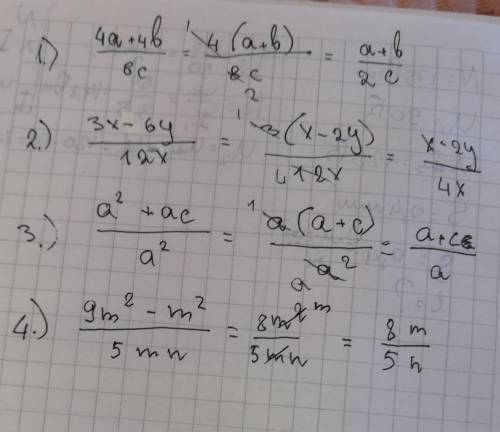 1.) (4a+4b)/(8c) = 4(a+b)/(8c) = (a+b)/(2c)
2.) (3x-6y)/(12x) = 3(x-2y)/(12x) = (x-2y)/(4x)
3.) (a²+ac)/a² = a(a+c)/a² = (a+c)/a
4.) (9m²-m²)/(5mn) = 8m²/(5mn) = 8m/(5n)